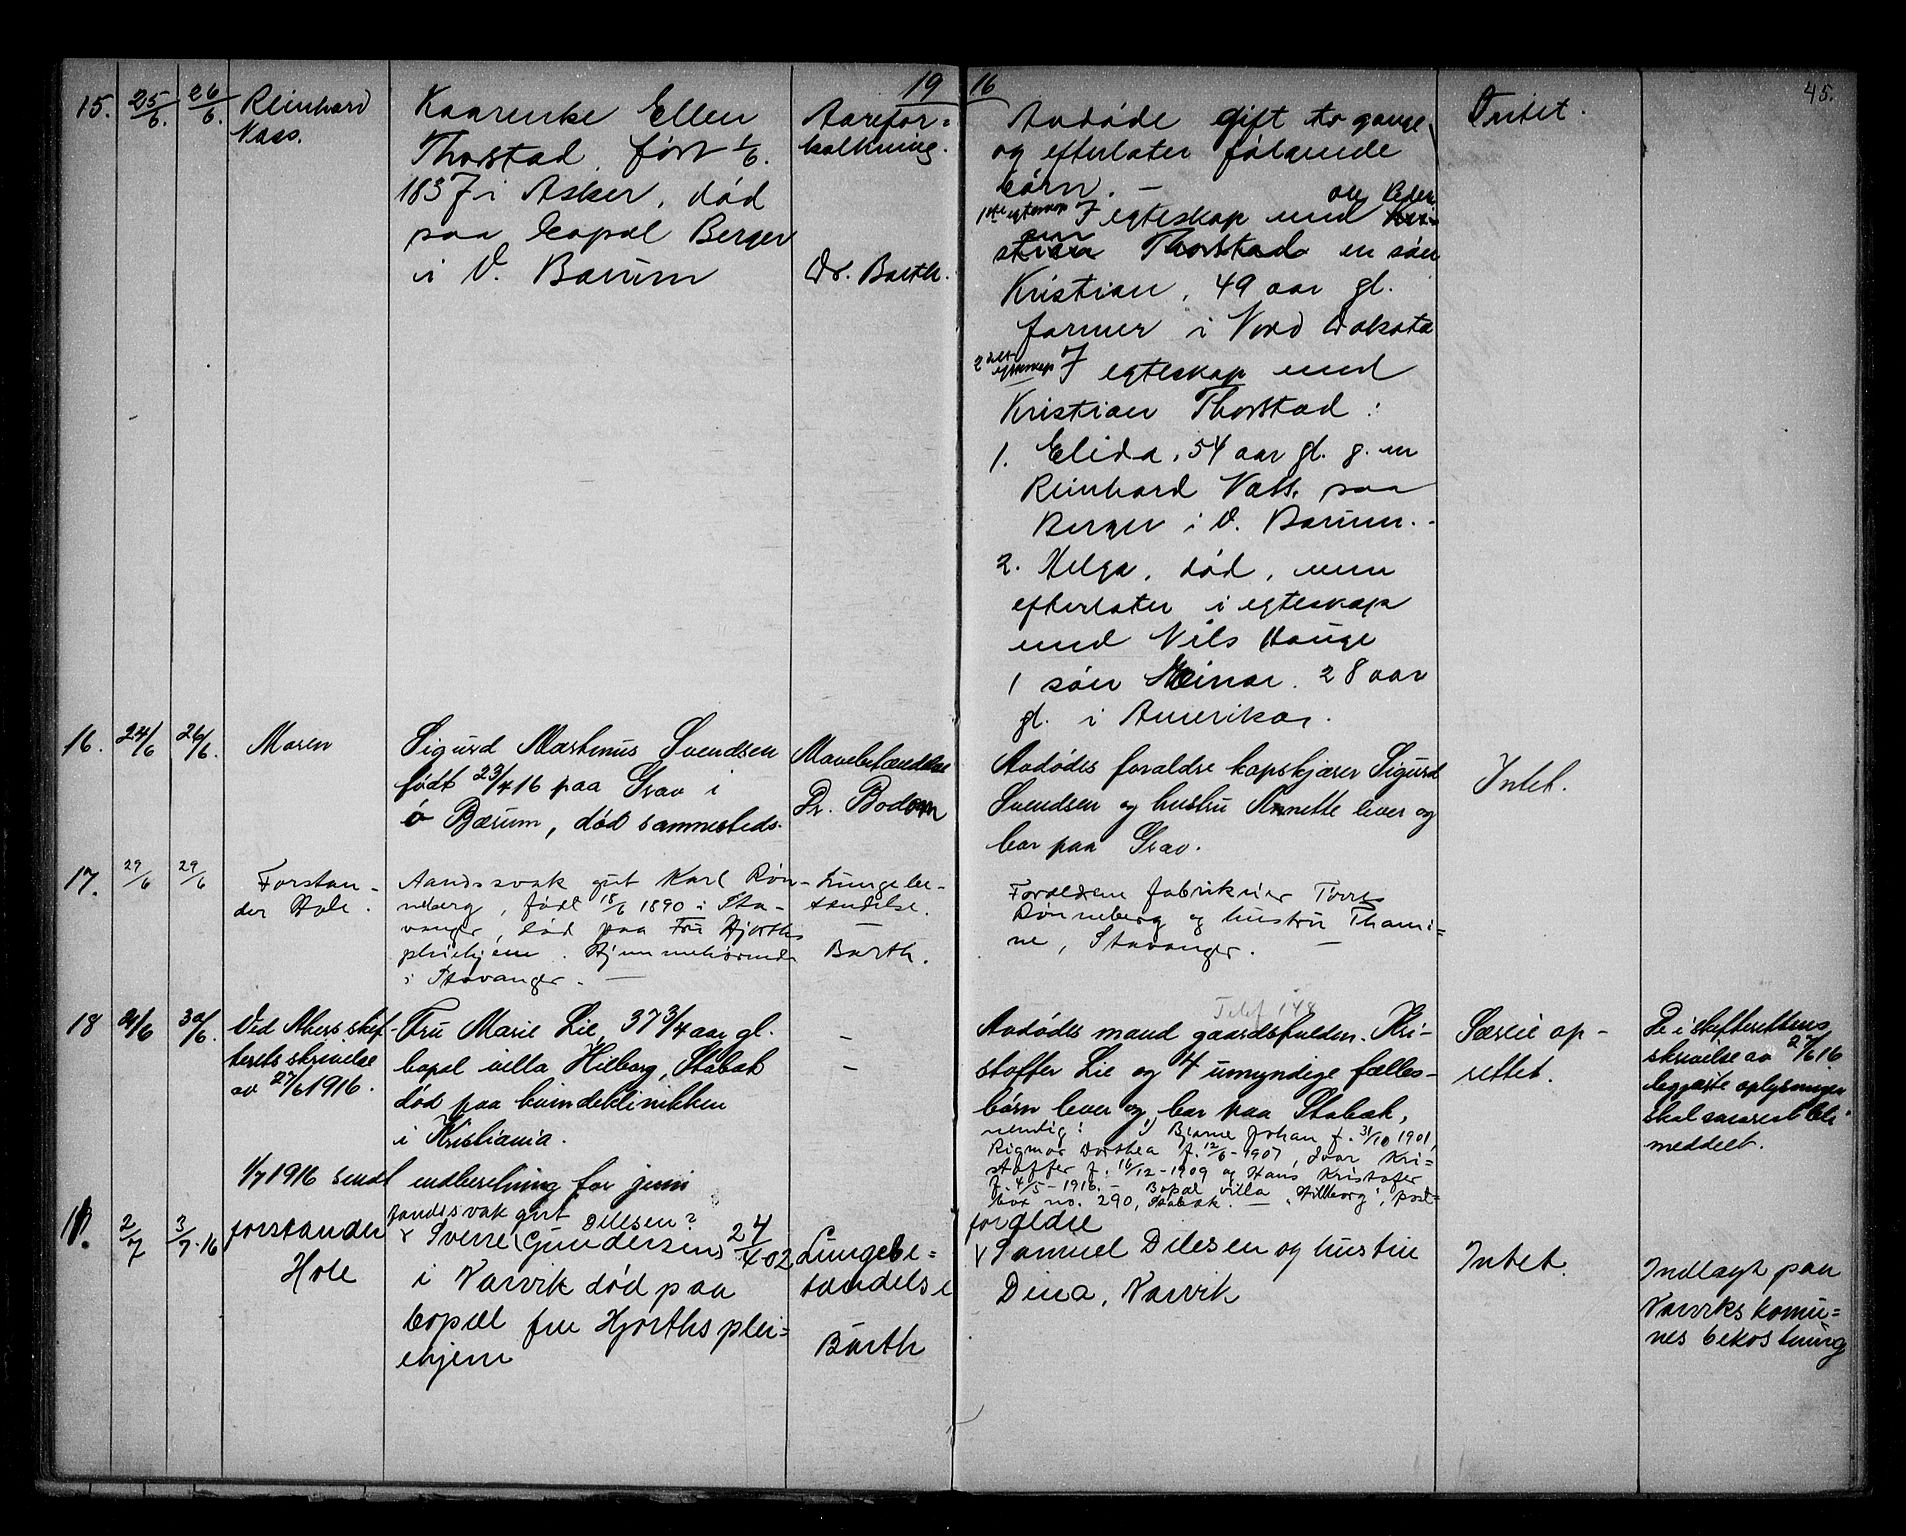 19 16
45.
15. 25/6. 26/6. Reinhard
Næss.
Kaarenke Ellen
Thorstad, født 1/6.
1837 i Asker, død
paa bopæl Berger
i V. Bærum
Aarefor=
kalkning.
Dr. Barth.
Avdøde gift to gange
og efterlater følgende
børn. —
1ste egteskap I egteskap med Ole Peder
Thorstad en søn
Kristian, 49 aar gl.
farmer i Nord Dakota
2det egteskap I egteskap med
Kristian Thorstad:
1. Elida, 54 aar gl. g. m
Reinhard Næss, paa
Berger i V. Bærum.-
2. Helga, død, men
efterlater i egteskap
med Nils Hauge
1 søn Einar. 28 aar
gl. i Amerika.
Intet.
16. 24/6 26/6. Maren
Sigurd Marthinus Svendsen
født 23/4 16 paa Grav i
Ø Bærum, død sammesteds.
Mavebetændelse
Dr. Bodom
Avdødes forældre kapskjører Sigurd
Svendsen og hustru Annette lever og
bor paa Grav.
Intet.
17. 29/6 29/6 Forstan-
der Hole.
Aandssvak gut Karl Røn-
neberg, født 18/6 1890 i Sta-
vanger, død paa Fru Hjorths
pleiehjem. Hjemmehørende
i Stavanger. —
Lungebe-
tændelse.
Barth.
Forældrene fabrikeier Torres
Rønneberg og hustru Thomi=
ne, Stavanger. —
18 24/6 30/6. Ved Akers skif-
terets skrivelse
av 27/6 1916.
Fru Marie Lie, 37 3/4 aar gl.
bopæl villa Hilborg, Stabæk
død paa kvindeklinikken
i Kristiania.
-
-
Telef 148
Avdødes mand gaardsfuldm. Kri-
stoffer Lie og 4 umyndige fælles-
børn lever og bor paa Stabæk,
nemlig: Bjarne Johan f. 31/10 1901,
Rigmor Dorthea f. 12/6-1907, Ivar Kri=
stoffer f. 16/12-1909 og Hans Kristofer
f. 4/5-1916. - Bopæl villa "Hillborg", post-
box no. 290, Stabæk. —
Særeie op-
rettet.
De i skifterettens
skrivelse av 27/6 16
begjærte oplysninger
skal snarest bli
meddelt.
1/7 1916 sendt indberetning for juni
19. 2/7 3/7.16 forstander
Hole
Aandssvak gut
Ditesen?
x Sverre (Gundersen) 24/4 02
i Narvik død paa
bopæl fru Hjorths plei=
ehjem
Lungebe=
tændelse
Barth
forældre
x Samuel Ditesen og hustru
Dina, Narvik
Intet.
Indlagt paa
Narviks komu=
nes bekostning